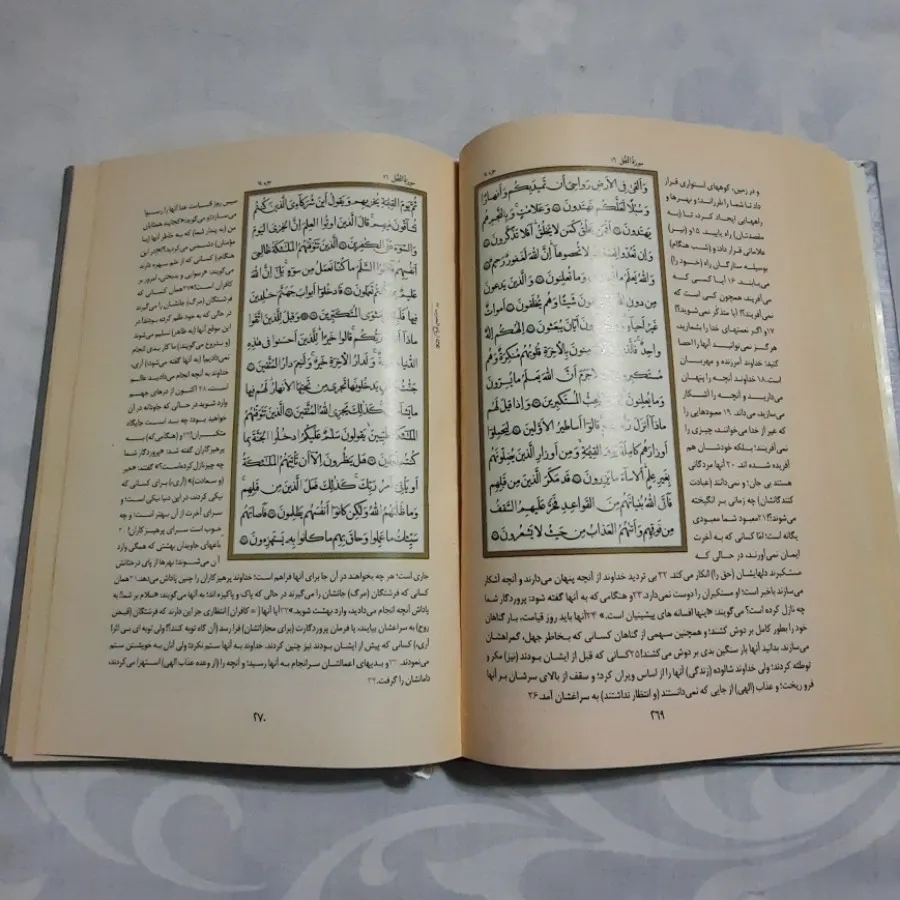 سورة النحل ١٦
وَأَلْقَىٰ فِي الْأَرْضِ رَوَاسِيَ أَنْ تَمِيدَ بِكُمْ وَأَنْهَارًا
وَسُبُلًا لَعَلَّكُمْ تَهْتَدُونَ ۝ وَعَلَامَاتٍ وَبِالنَّجْمِ هُمْ
يَهْتَدُونَ ۝ أَفَمَنْ يَخْلُقُ كَمَنْ لَا يَخْلُقُ أَفَلَا تَذَكَّرُونَ ۝
وَإِنْ تَعُدُّوا نِعْمَةَ اللَّهِ لَا تُحْصُوهَا إِنَّ اللَّهَ لَغَفُورٌ رَحِيمٌ ۝
وَاللَّهُ يَعْلَمُ مَا تُسِرُّونَ وَمَا تُعْلِنُونَ ۝ وَالَّذِينَ يَدْعُونَ
مِنْ دُونِ اللَّهِ لَا يَخْلُقُونَ شَيْئًا وَهُمْ يُخْلَقُونَ ۝ أَمْوَاتٌ
غَيْرُ أَحْيَاءٍ وَمَا يَشْعُرُونَ أَيَّانَ يُبْعَثُونَ ۝ إِلَٰهُكُمْ إِلَٰهٌ
وَاحِدٌ فَالَّذِينَ لَا يُؤْمِنُونَ بِالْآخِرَةِ قُلُوبُهُمْ مُنْكِرَةٌ وَهُمْ
مُسْتَكْبِرُونَ ۝ لَا جَرَمَ أَنَّ اللَّهَ يَعْلَمُ مَا يُسِرُّونَ
وَمَا يُعْلِنُونَ إِنَّهُ لَا يُحِبُّ الْمُسْتَكْبِرِينَ ۝ وَإِذَا قِيلَ لَهُمْ
مَاذَا أَنْزَلَ رَبُّكُمْ قَالُوا أَسَاطِيرُ الْأَوَّلِينَ ۝ لِيَحْمِلُوا
أَوْزَارَهُمْ كَامِلَةً يَوْمَ الْقِيَامَةِ وَمِنْ أَوْزَارِ الَّذِينَ يُضِلُّونَهُمْ
بِغَيْرِ عِلْمٍ أَلَا سَاءَ مَا يَزِرُونَ ۝ قَدْ مَكَرَ الَّذِينَ مِنْ قَبْلِهِمْ
فَأَتَى اللَّهُ بُنْيَانَهُمْ مِنَ الْقَوَاعِدِ فَخَرَّ عَلَيْهِمُ السَّقْفُ
مِنْ فَوْقِهِمْ وَأَتَاهُمُ الْعَذَابُ مِنْ حَيْثُ لَا يَشْعُرُونَ ۝
و در زمین، کوههای استواری قرار
داد تا شما را نلرزاند؛ و نهرها و
راههایی ایجاد کرد، تا (به
مقصدتان) راه یابید. ۱۵ و (نیز)
علاماتی قرار داد؛ و (شب هنگام)
بوسیله ستارگان راه (خود را)
می‌یابند. ۱۶ آیا کسی که
می‌آفریند، همچون کسی است که
نمی‌آفریند؟! آیا متذکر نمی‌شوید؟!
۱۷ و اگر نعمتهای خدا را بشمارید،
هرگز نمی‌توانید آنها را احصا
کنید؛ خداوند آمرزنده و مهربان
است. ۱۸ خداوند آنچه را پنهان
می‌دارید و آنچه را آشکار
می‌سازید می‌داند. ۱۹ معبودهایی را
که غیر از خدا می‌خوانند، چیزی را
نمی‌آفرینند؛ بلکه خودشان هم
آفریده شده اند. ۲۰ آنها مردگانی
هستند بی جان؛ و نمی‌دانند (عبادت
کنندگانشان) چه زمانی بر انگیخته
می‌شوند!!۲۱ معبود شما معبودی
یگانه است؛ امّا کسانی که به آخرت
ایمان نمی‌آورند، در حالی که
مستکبرند دلهایشان (حق را) انکار می‌کند. ۲۲ بی تردید خداوند از آنچه پنهان می‌دارند و آنچه آشکار
می‌سازند باخبر است؛ او مستکبران را دوست نمی‌دارد.۲۳ و هنگامی که به آنها گفته شود: پروردگار شما
چه نازل کرده است؟ می‌گویند: «اینها افسانه های پیشینیان است. »۲۴ آنها باید روز قیامت، بار گناهان
خود را بطور کامل بر دوش کشند؛ و همچنین سهمی از گناهان کسانی که بخاطر جهل، گمراهشان
می‌سازند. بدانید آنها بار سنگین بدی بر دوش می‌کشند!۲۵ کسانی که قبل از ایشان بودند (نیز) مکر و
توطئه کردند؛ ولی خداوند شالوده (زندگی) آنها را از اساس ویران کرد؛ و سقف از بالای سرشان بر آنها
فرو ریخت؛ و عذاب (الهی) از جایی که نمی‌دانستند (و انتظار نداشتند) به سراغشان آمد. ۲۶
۲۶۹
سورة النحل ١٦
ثُمَّ يَوْمَ الْقِيَامَةِ يُخْزِيهِمْ وَيَقُولُ أَيْنَ شُرَكَائِيَ الَّذِينَ كُنْتُمْ
تُشَاقُّونَ فِيهِمْ قَالَ الَّذِينَ أُوتُوا الْعِلْمَ إِنَّ الْخِزْيَ الْيَوْمَ
وَالسُّوءَ عَلَى الْكَافِرِينَ ۝ الَّذِينَ تَتَوَفَّاهُمُ الْمَلَائِكَةُ ظَالِمِي
أَنْفُسِهِمْ فَأَلْقَوُا السَّلَمَ مَا كُنَّا نَعْمَلُ مِنْ سُوءٍ بَلَىٰ إِنَّ اللَّهَ
عَلِيمٌ بِمَا كُنْتُمْ تَعْمَلُونَ ۝ فَادْخُلُوا أَبْوَابَ جَهَنَّمَ خَالِدِينَ
فِيهَا فَلَبِئْسَ مَثْوَى الْمُتَكَبِّرِينَ ۝ وَقِيلَ لِلَّذِينَ اتَّقَوْا
مَاذَا أَنْزَلَ رَبُّكُمْ قَالُوا خَيْرًا لِلَّذِينَ أَحْسَنُوا فِي هَٰذِهِ
الدُّنْيَا حَسَنَةٌ وَلَدَارُ الْآخِرَةِ خَيْرٌ وَلَنِعْمَ دَارُ الْمُتَّقِينَ ۝
جَنَّاتُ عَدْنٍ يَدْخُلُونَهَا تَجْرِي مِنْ تَحْتِهَا الْأَنْهَارُ لَهُمْ فِيهَا
مَا يَشَاءُونَ كَذَٰلِكَ يَجْزِي اللَّهُ الْمُتَّقِينَ ۝ الَّذِينَ تَتَوَفَّاهُمُ
الْمَلَائِكَةُ طَيِّبِينَ يَقُولُونَ سَلَامٌ عَلَيْكُمُ ادْخُلُوا الْجَنَّةَ بِمَا
كُنْتُمْ تَعْمَلُونَ ۝ هَلْ يَنْظُرُونَ إِلَّا أَنْ تَأْتِيَهُمُ الْمَلَائِكَةُ
أَوْ يَأْتِيَ أَمْرُ رَبِّكَ كَذَٰلِكَ فَعَلَ الَّذِينَ مِنْ قَبْلِهِمْ
وَمَا ظَلَمَهُمُ اللَّهُ وَلَٰكِنْ كَانُوا أَنْفُسَهُمْ يَظْلِمُونَ ۝ فَأَصَابَهُمْ
سَيِّئَاتُ مَا عَمِلُوا وَحَاقَ بِهِمْ مَا كَانُوا بِهِ يَسْتَهْزِءُونَ ۝
سپس روز قیامت خدا آنها را رسوا
می‌سازد؛ و می‌گوید: «کجایند همتایان
من (به پندار شما) که به خاطر آنها (با
مؤمنان) دشمنی می‌کردید؟! (در این
هنگام،) کسانی که از علم بهره دارند
می‌گویند: «رسوایی و بدبختی، امروز بر
کافران است!»۲۷ همان کسانی که
فرشتگان (مرگ) جانشان را می‌گیرند
در حالی که به خود ظلم کرده بودند! در
این موقع آنها (به ظاهر) تسلیم می‌شوند
(و بدروغ می‌گویند:) ما کار بدی انجام
نمی‌دادیم! (به آنها گفته می‌شود:) آری،
خداوند به آنچه انجام می‌دادید عالم
است. ۲۸ اکنون از درهای جهنم
وارد شوید در حالی که جاودانه در آن
خواهید بود؛ چه بد است جایگاه
متکبران!۲۹ و (هنگامی که) به
پرهیزگاران گفته می‌شد: «پروردگار شما
چه چیز نازل کرده است؟» گفتند: «خیر
(و سعادت)» (آری،) برای کسانی که
نیکی کردند، در این دنیا نیکی است؛ و
سرای آخرت از آن بهتر است؛ و چه
خوب است سرای پرهیزکاران! ۳۰
باغهای جاویدان بهشتی که همگی وارد
آن می‌شوند؛ نهرها از پای درختانش
جاری است؛ هر چه بخواهند در آن جا برای آنها فراهم است؛ خداوند پرهیزگاران را چنین پاداش می‌دهد. ۳۱ همان
کسانی که فرشتگان (مرگ) جانشان را می‌گیرند در حالی که پاک و پاکیزه اند؛ به آنها می‌گویند: «سلام بر شما! به
پاداش آنچه انجام می‌دادید، وارد بهشت شوید.»۳۲ آیا آنها (= کافران) انتظاری جز این دارند که فرشتگان (قبض
روح) به سراغشان بیایند، یا فرمان پروردگارت (برای مجازاتشان) فرا رسد (آن گاه توبه کنند؟! ولی توبه ای بی اثر!
آری،) کسانی که پیش از ایشان بودند نیز چنین کردند. خداوند به آنها ستم نکرد؛ ولی آنان به خویشتن ستم
می‌نمودند. ۳۳ و بدیهای اعمالشان سرانجام به آنها رسید؛ و آنچه را (از وعده عذاب الهی) استهزا می‌کردند،
دامانشان را گرفت.۳۴
۲۷۰